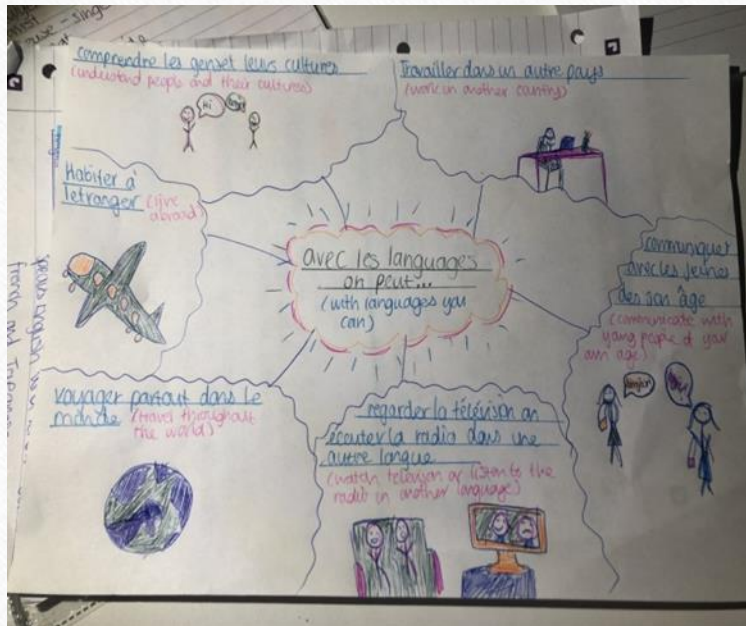 comprendre les genset leurs cultures
(understand people and their cultures)
Hi
Travailler dans un autre pays
(work in another country)
Habiter à
letranger (live
abroad)
avec les languages
on peut...
(with languages you
can)
communiquer
avec les jeunes
des son âge
(communicate with
young people of your
own age)
Bonjour
voyager partout dans le
monde (travel throughout
the world)
regarder la télévision on
écouter la radio dans une
autre langue
(watch television or listen to the
radio in another language)